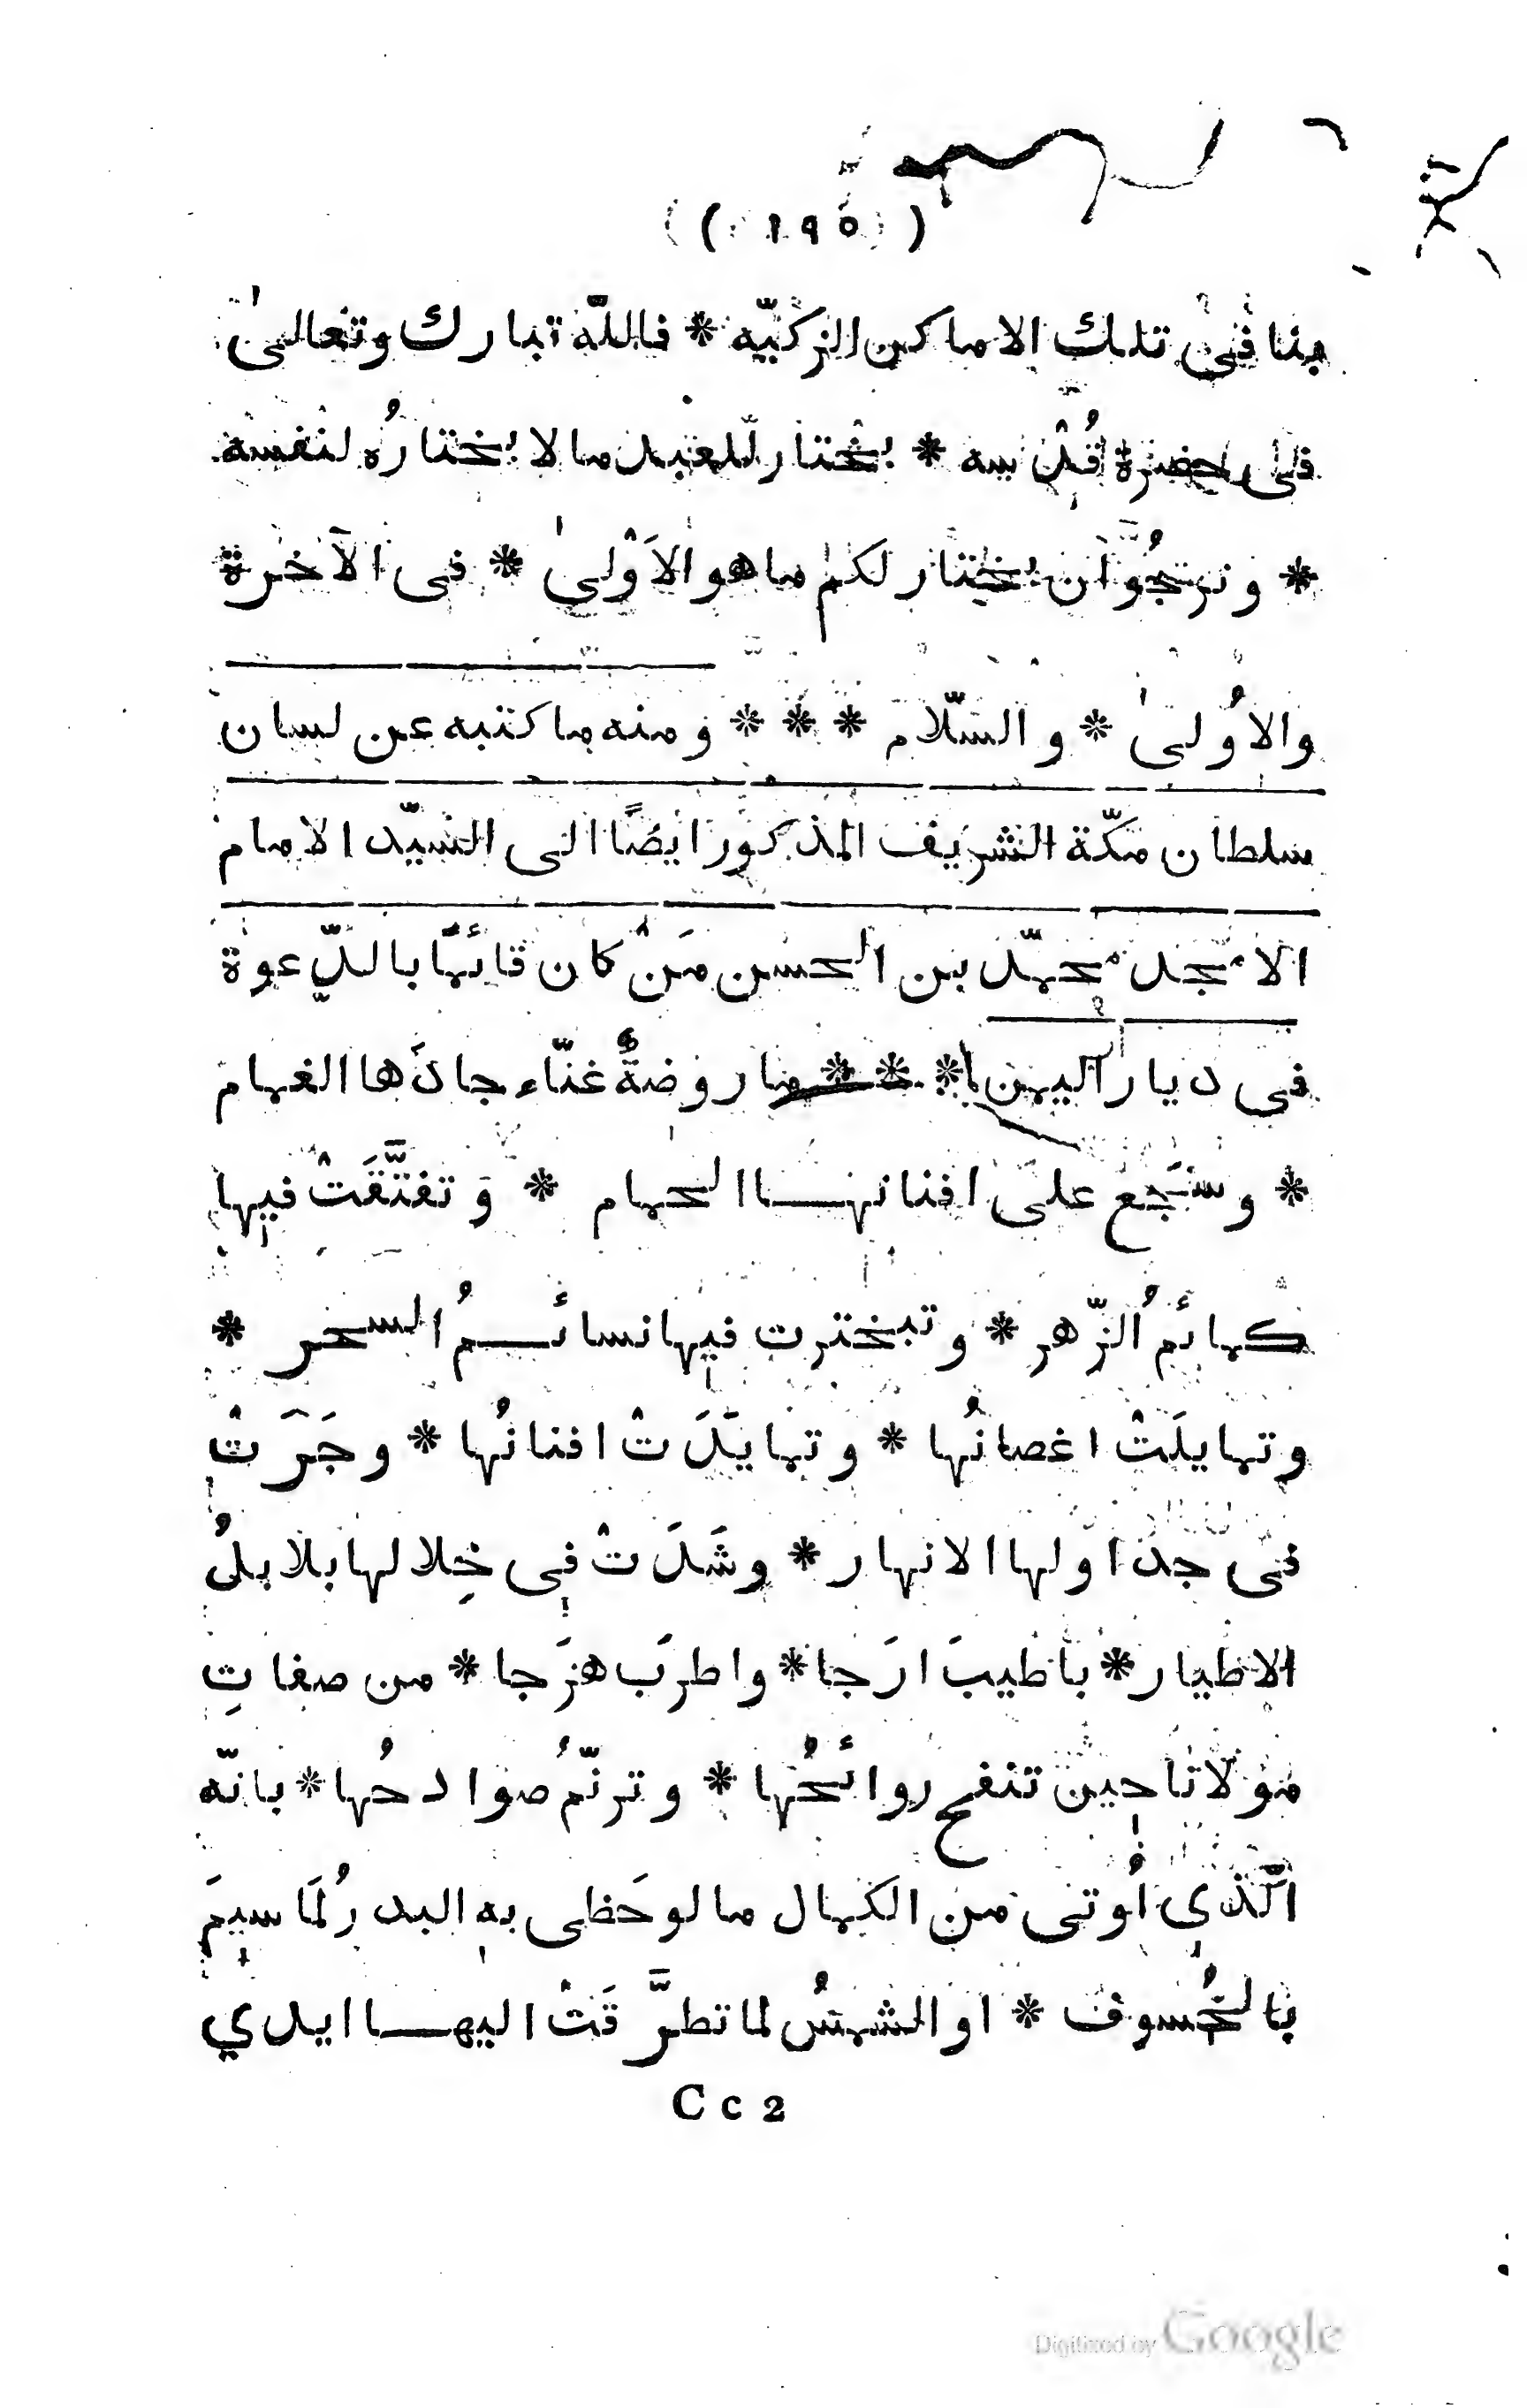 ( ١٩٥ )
بنا فى تلك الاماكن الزكيّه * فاللّه تبارك وتعالىٰ
فى حضرة قُدْسه * يختار للعبد مالا يختارُه لنفسه
* ونرجُوْ ان يختار لكم ماهو الاَوْلىٰ * فى الآخرة
والاُولىٰ * والسّلام * * * ومنه ما كتبه عن لسان
سلطان مكّة الشريف المذكور ايضًا الى السّيّد الامام
الامجد محمّد بن الحسن مَنْ كان قائمًا بالدّعوة
فى ديار اليمن * * * ما روضةٌ غنّاء جادَها الغمام
* وسَجَع على افنانهـا الحمام * وَتفتَّقَتْ فيها
كمائمُ الزّهر * وتبخترت فيها نسائـمُ السحر *
وتمايلَتْ اغصانُها * وتمايَدَتْ افنانُها * وجَرَتْ
فى جداولها الانهار * وشَدَتْ فى خِلالها بلابلُ
الاطيار * باطيبَ ارَجا * واطرَب هزَجا * من صفاتِ
مولانا حين تنفح روائحُها * وترنّمُ صوادحُها * بانّه
الّذي اُوتى من الكمال مالو حَظى به البدرُ لَمَا سيمَ
بالخُسوف * او الشمسُ لما تطرَّقَتْ اليهـا ايدي
C c 2
Digitized by Google